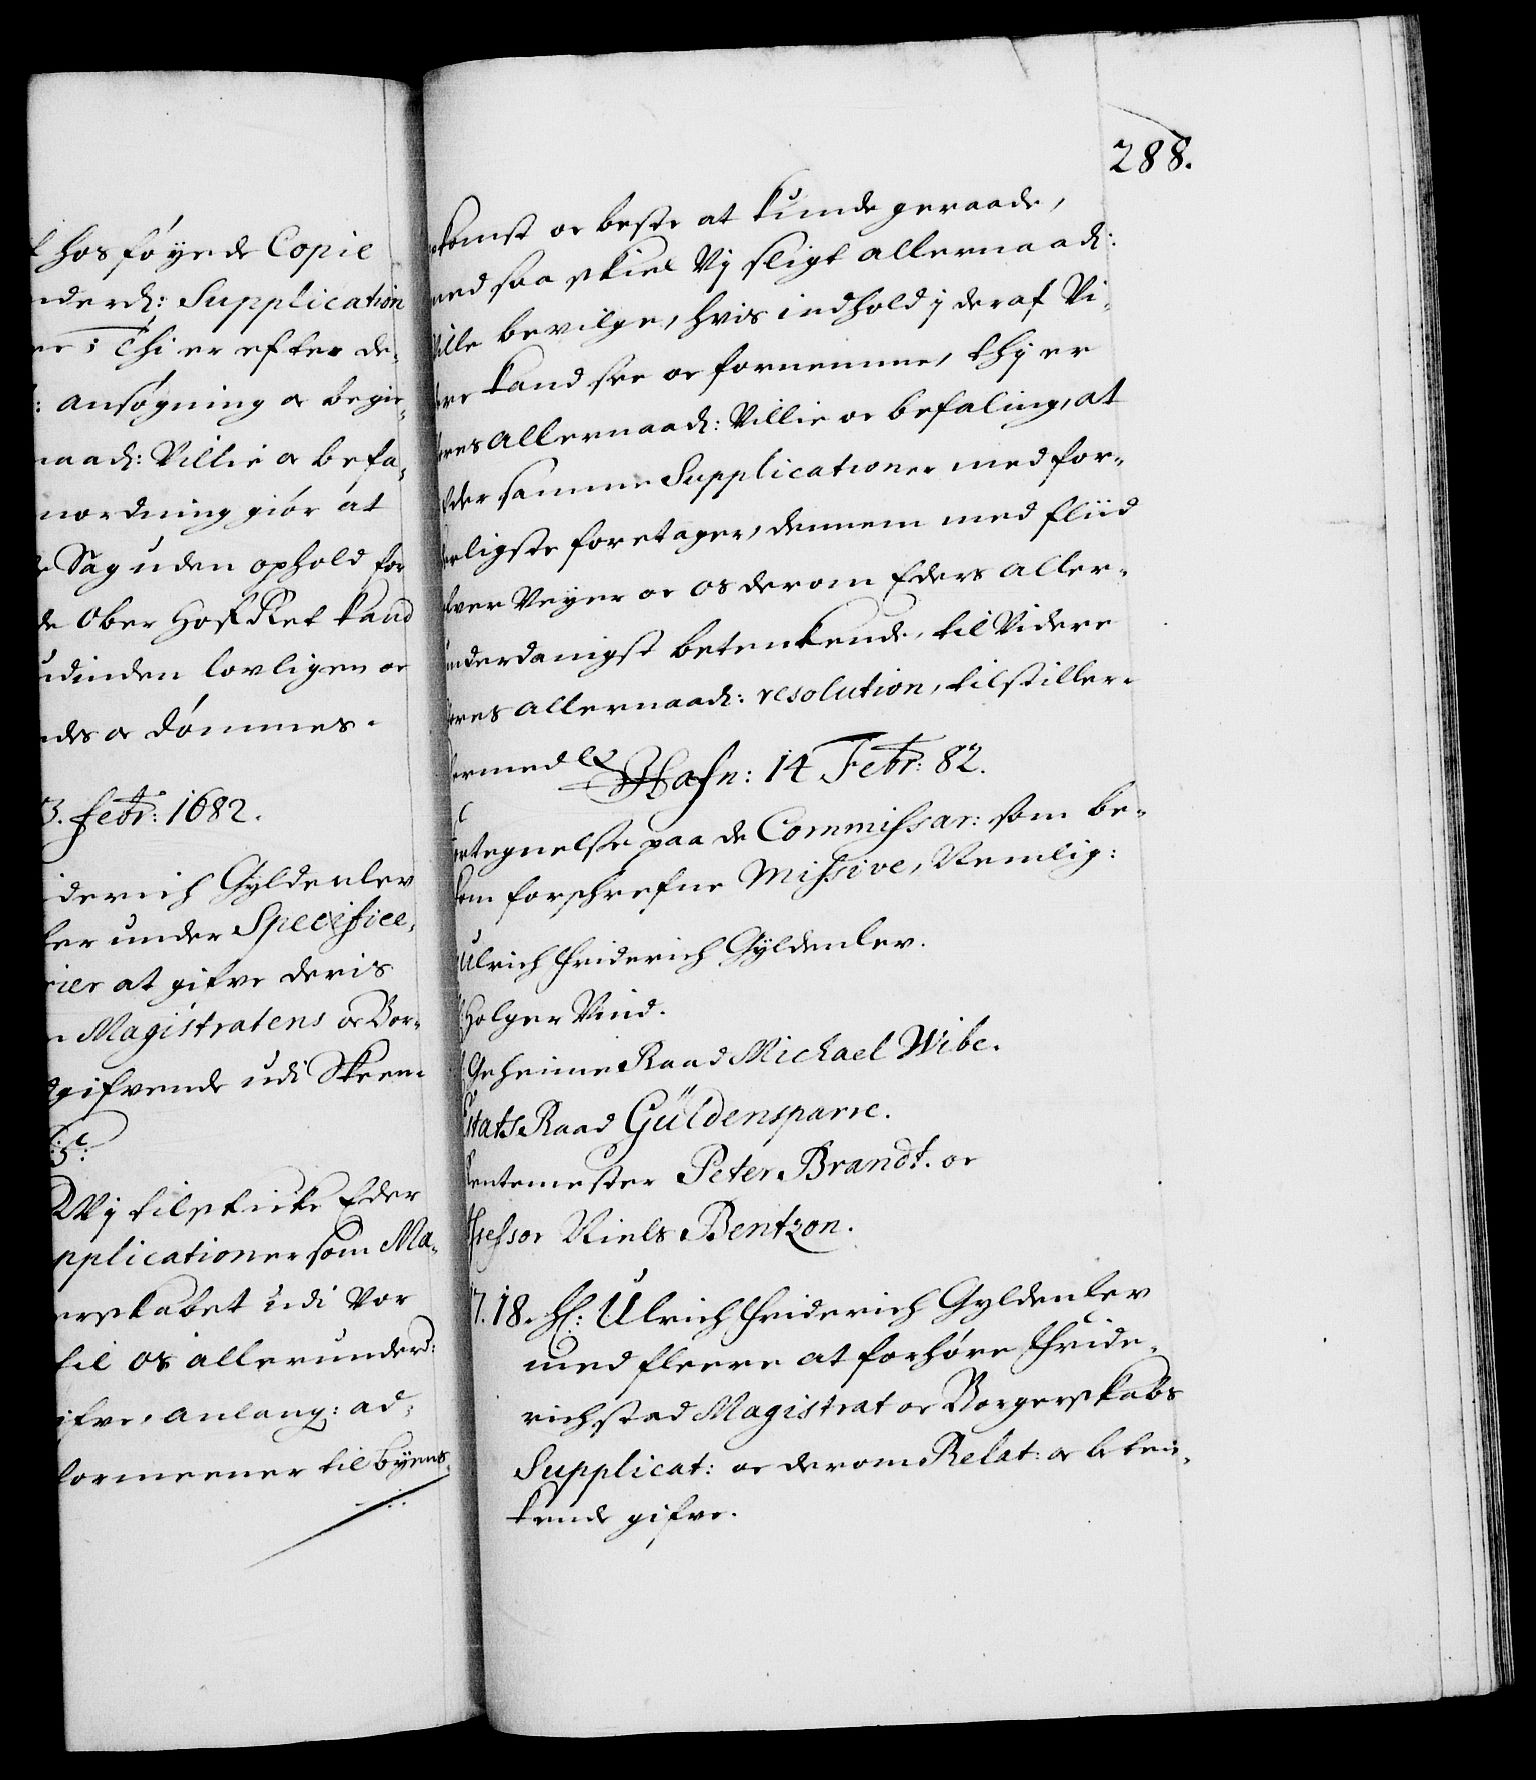 hos føyede Copie
Supplication
Thi er efter de-
: ansøgning oc begie-
naad: Villie oc befa-
nordning giør at
Sag uden ophold for
de Ober Hof Ret kand
udinden lovligen oc
des oc dømmes.
3. Febr: 1682.
iderich Gyldenlev
ler under Specifice-
rier at gifve deris
Magistratens oc Bor-
gifvende udi Skeen-
Wij tilskicke Eder
pplicationer som Ma-
erskabet udi vor
til os allerunderd:
ifve, anlang: ad-
formeener til byens
288.
komst oc beste at kunde geraade,
med saa skiel Vj sligt allernaad:
ville bevilge, hvis indhold j deraf Vi-
dere kand see oc fornemme, thj er
Vores allernaad: Villie oc befaling, at
I der samme Supplicationer med for-
derligste foretager, dennem med fliid
ofver Veyer oc os derom Eders aller-
underdanigst betenkende, til Videre
Vores allernaad: resolution, tilstiller.
Hermed Hafn: 14 Febr: 82.
Fortegnelse paa de Commissar: som be-
kom forschrefne Missive, Nemlig:
Ulrich Friderich Gyldenlev.
Holger Vind.
Geheime Raad Michael Wibe.
Etats Raad Güldensparre.
Rentemester Peter Brandt. oc
Assessor Niels Bentzon.
17. 18. H: Ulrich Friderich Gyldenlev
med fleere at forhøre Fride-
richstad Magistrat oc Borgerskabs
Supplicat: oc derom Relat: oc beten-
kende gifve.